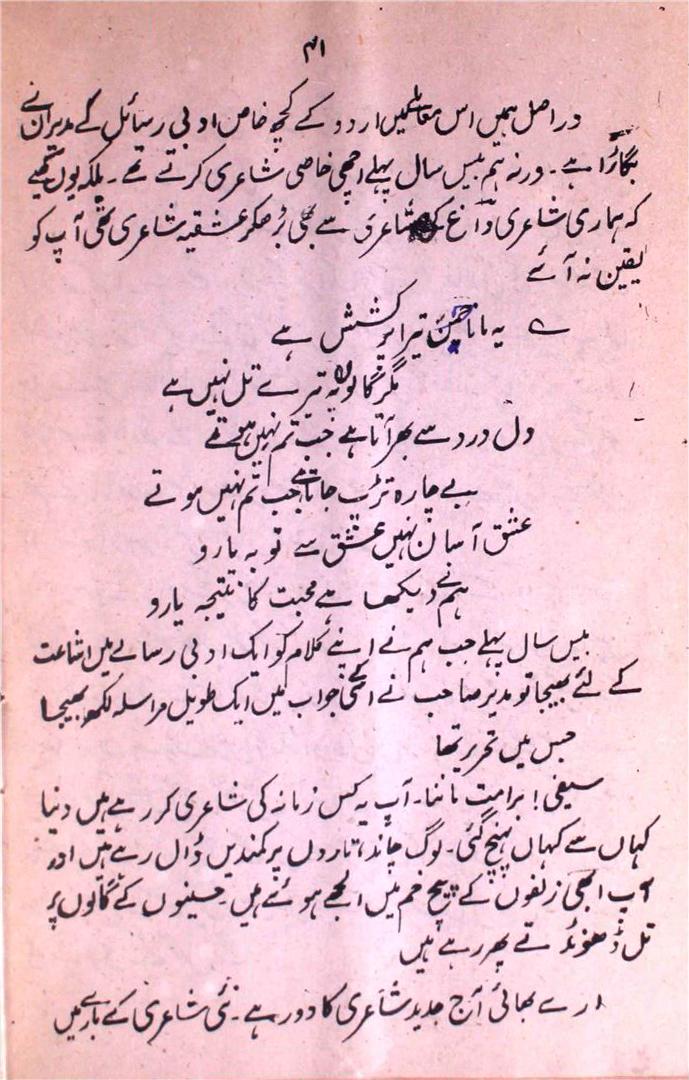 ۴۱
دراصل ہمیں اس معاملے میں اردو کے کچھ خاص ادبی رسائل کے مدیران نے
بگاڑا ہے۔ ورنہ ہم بیس سال پہلے اچھی خاصی شاعری کرتے تھے۔ بلکہ یوں کہیے
کہ ہماری شاعری داغ کی شاعری سے بھی بڑھکر عشقیہ شاعری تھی آپ کو
یقین نہ آئے
یہ مانا حسن تیرا پرکشش ہے
مگر گالوں پہ تیرے تل نہیں ہے
دل درد سے بھر آتا ہے جب تم نہیں ہوتے
بے چارہ تڑپ جاتا ہے جب تم نہیں ہوتے
عشق آسان نہیں عشق سے توبہ یارو
ہم نے دیکھا ہے محبت کا نتیجہ یارو
بیس سال پہلے جب ہم نے اپنے کلام کو ایک ادبی رسالے میں اشاعت
کے لئے بھیجا تو مدیر صاحب نے ہمیں جواب میں ایک طویل مراسلہ لکھ بھیجا
جس میں تحریر تھا
سیفی! برا مت ماننا۔ آپ یہ کس زمانہ کی شاعری کر رہے ہیں دنیا
کہاں سے کہاں پہنچ گئی۔ لوگ چاند، تاروں پر کمندیں ڈال رہے ہیں اور
آپ ابھی زلفوں کے پیچ خم میں الجھے ہوئے ہیں۔ حسینوں کے گالوں پر
تل ڈھونڈتے پھر رہے ہیں
ارے بھائی آج جدید شاعری کا دور ہے۔ نئی شاعری کے بارے میں